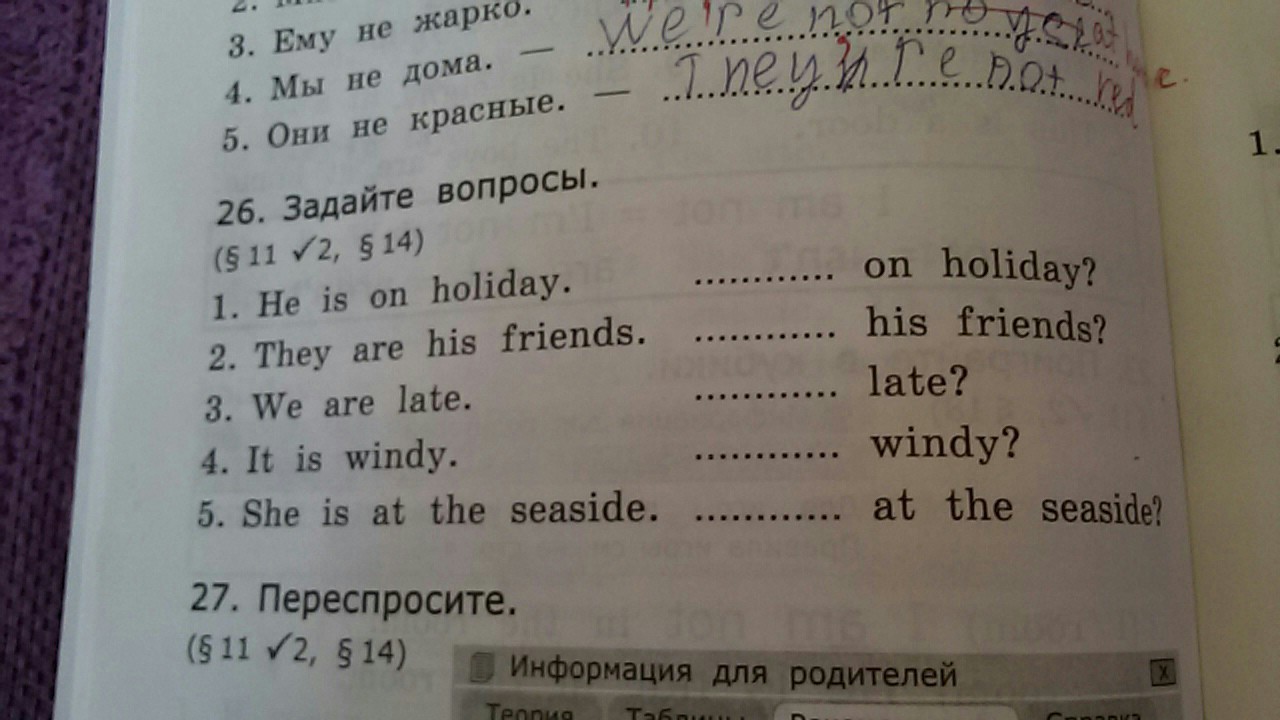 3. Ему не жарко.
4. Мы не дома. — We're not at
5. Они не красные. — They're not red
26. Задайте вопросы.
(§ 11 ✓2, § 14)
1. He is on holiday. ............ on holiday?
2. They are his friends. ............ his friends?
3. We are late. ............ late?
4. It is windy. ............ windy?
5. She is at the seaside. ............ at the seaside?
27. Переспросите.
(§ 11 ✓2, § 14)
Информация для родителей x
Теория Таблицы Справка
1.